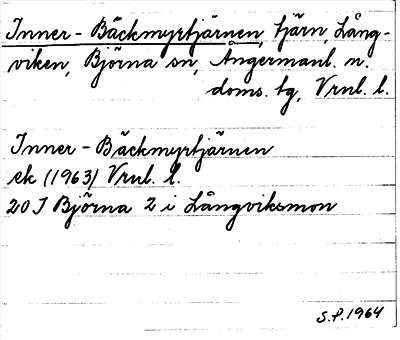 Inner-Bäckmyrtjärnen, tjärn, Lång-
viken, Björna sn, Ångermanl. n.
doms. tg, Vrnl. l.
Inner-Bäckmyrtjärnen
ek (1963) Vrnl. l.
20J Björna 2 i Långviksmon
S.P. 1964